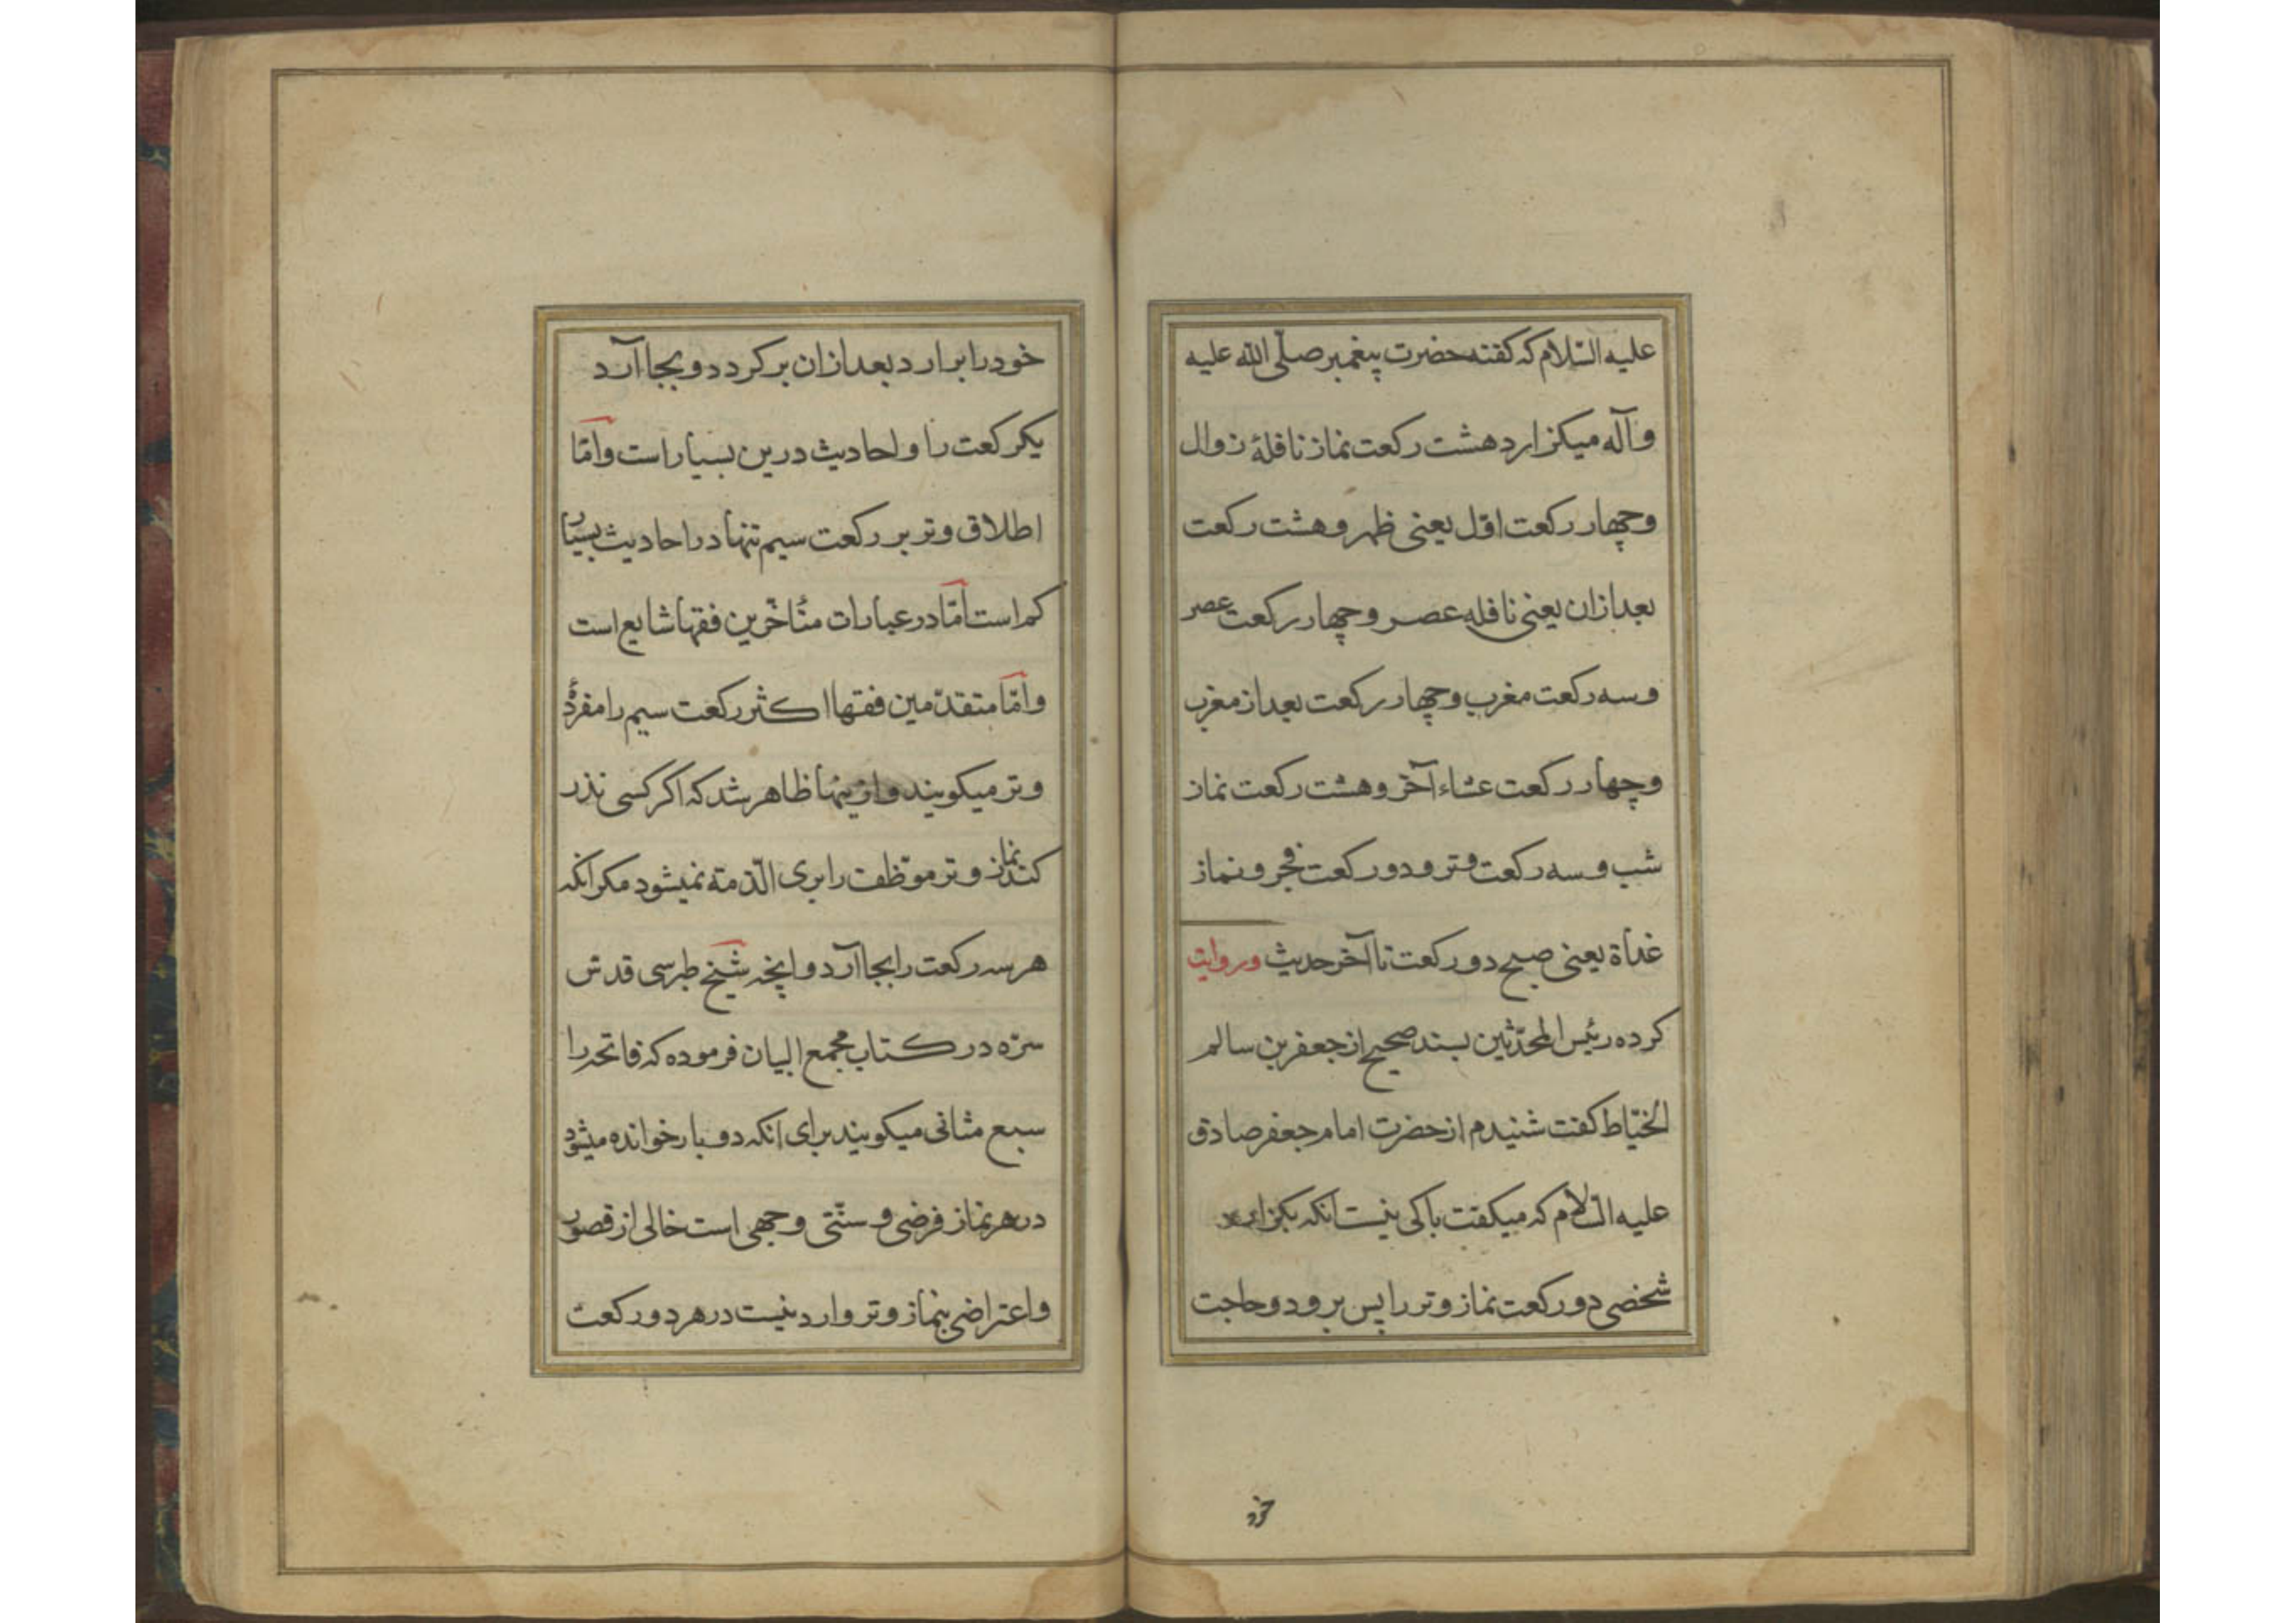 علیه السّلام که کفته حضرت پیغمبر صلّی الله علیه
وآله میکزارد هشت رکعت نماز نافلهٔ زوال
وچهار رکعت اوّل یعنی ظهر و هشت رکعت
بعد ازان یعنی نافله عصر و چهار رکعت عصر
وسه رکعت مغرب وچهار رکعت بعد از مغرب
وچهار رکعت عشاء آخر و هشت رکعت نماز
شب وسه رکعت وتر و دو رکعت فجر و نماز
غداة یعنی صبح دو رکعت تا آخر حدیث و روایت
کرده رئیس المحدّثین بسند صحیح از جعفر بن سالم
الخیّاط کفت شنیدم از حضرت امام جعفر صادق
علیه السّلام که میکفت باکی نیست انکه بکزارد
شخصی دو رکعت نماز وتر را پس برود و حاجت
خود
خود را برارد بعد ازان برکردد و بجا آرد
یکرکعت را و احادیث درین بسیار است وامّا
اطلاق وتر بر رکعت سیم تنها در احادیث بسیار
کم است امّا در عبارات متأخّرین فقها شایع است
وامّا متقدّمین فقها اکثر رکعت سیم را مفردهٔ
وتر میکویند و ازینها ظاهر شد که اکر کسی نذر
کند نماز وتر موظّفت را بری الذّمته نمیشود مکر انکه
هر سه رکعت را بجا آرد و اینچه شیخ طبرسی قدس
سرّه در کتاب مجمع البیان فرموده که فاتحه را
سبع مثانی میکویند برای انکه دو بار خوانده میشود
در هر نماز فرضی و سنّتی وجهی است خالی از قصور
واعتراضی بنماز وتر وارد نیست در هر دو رکعت